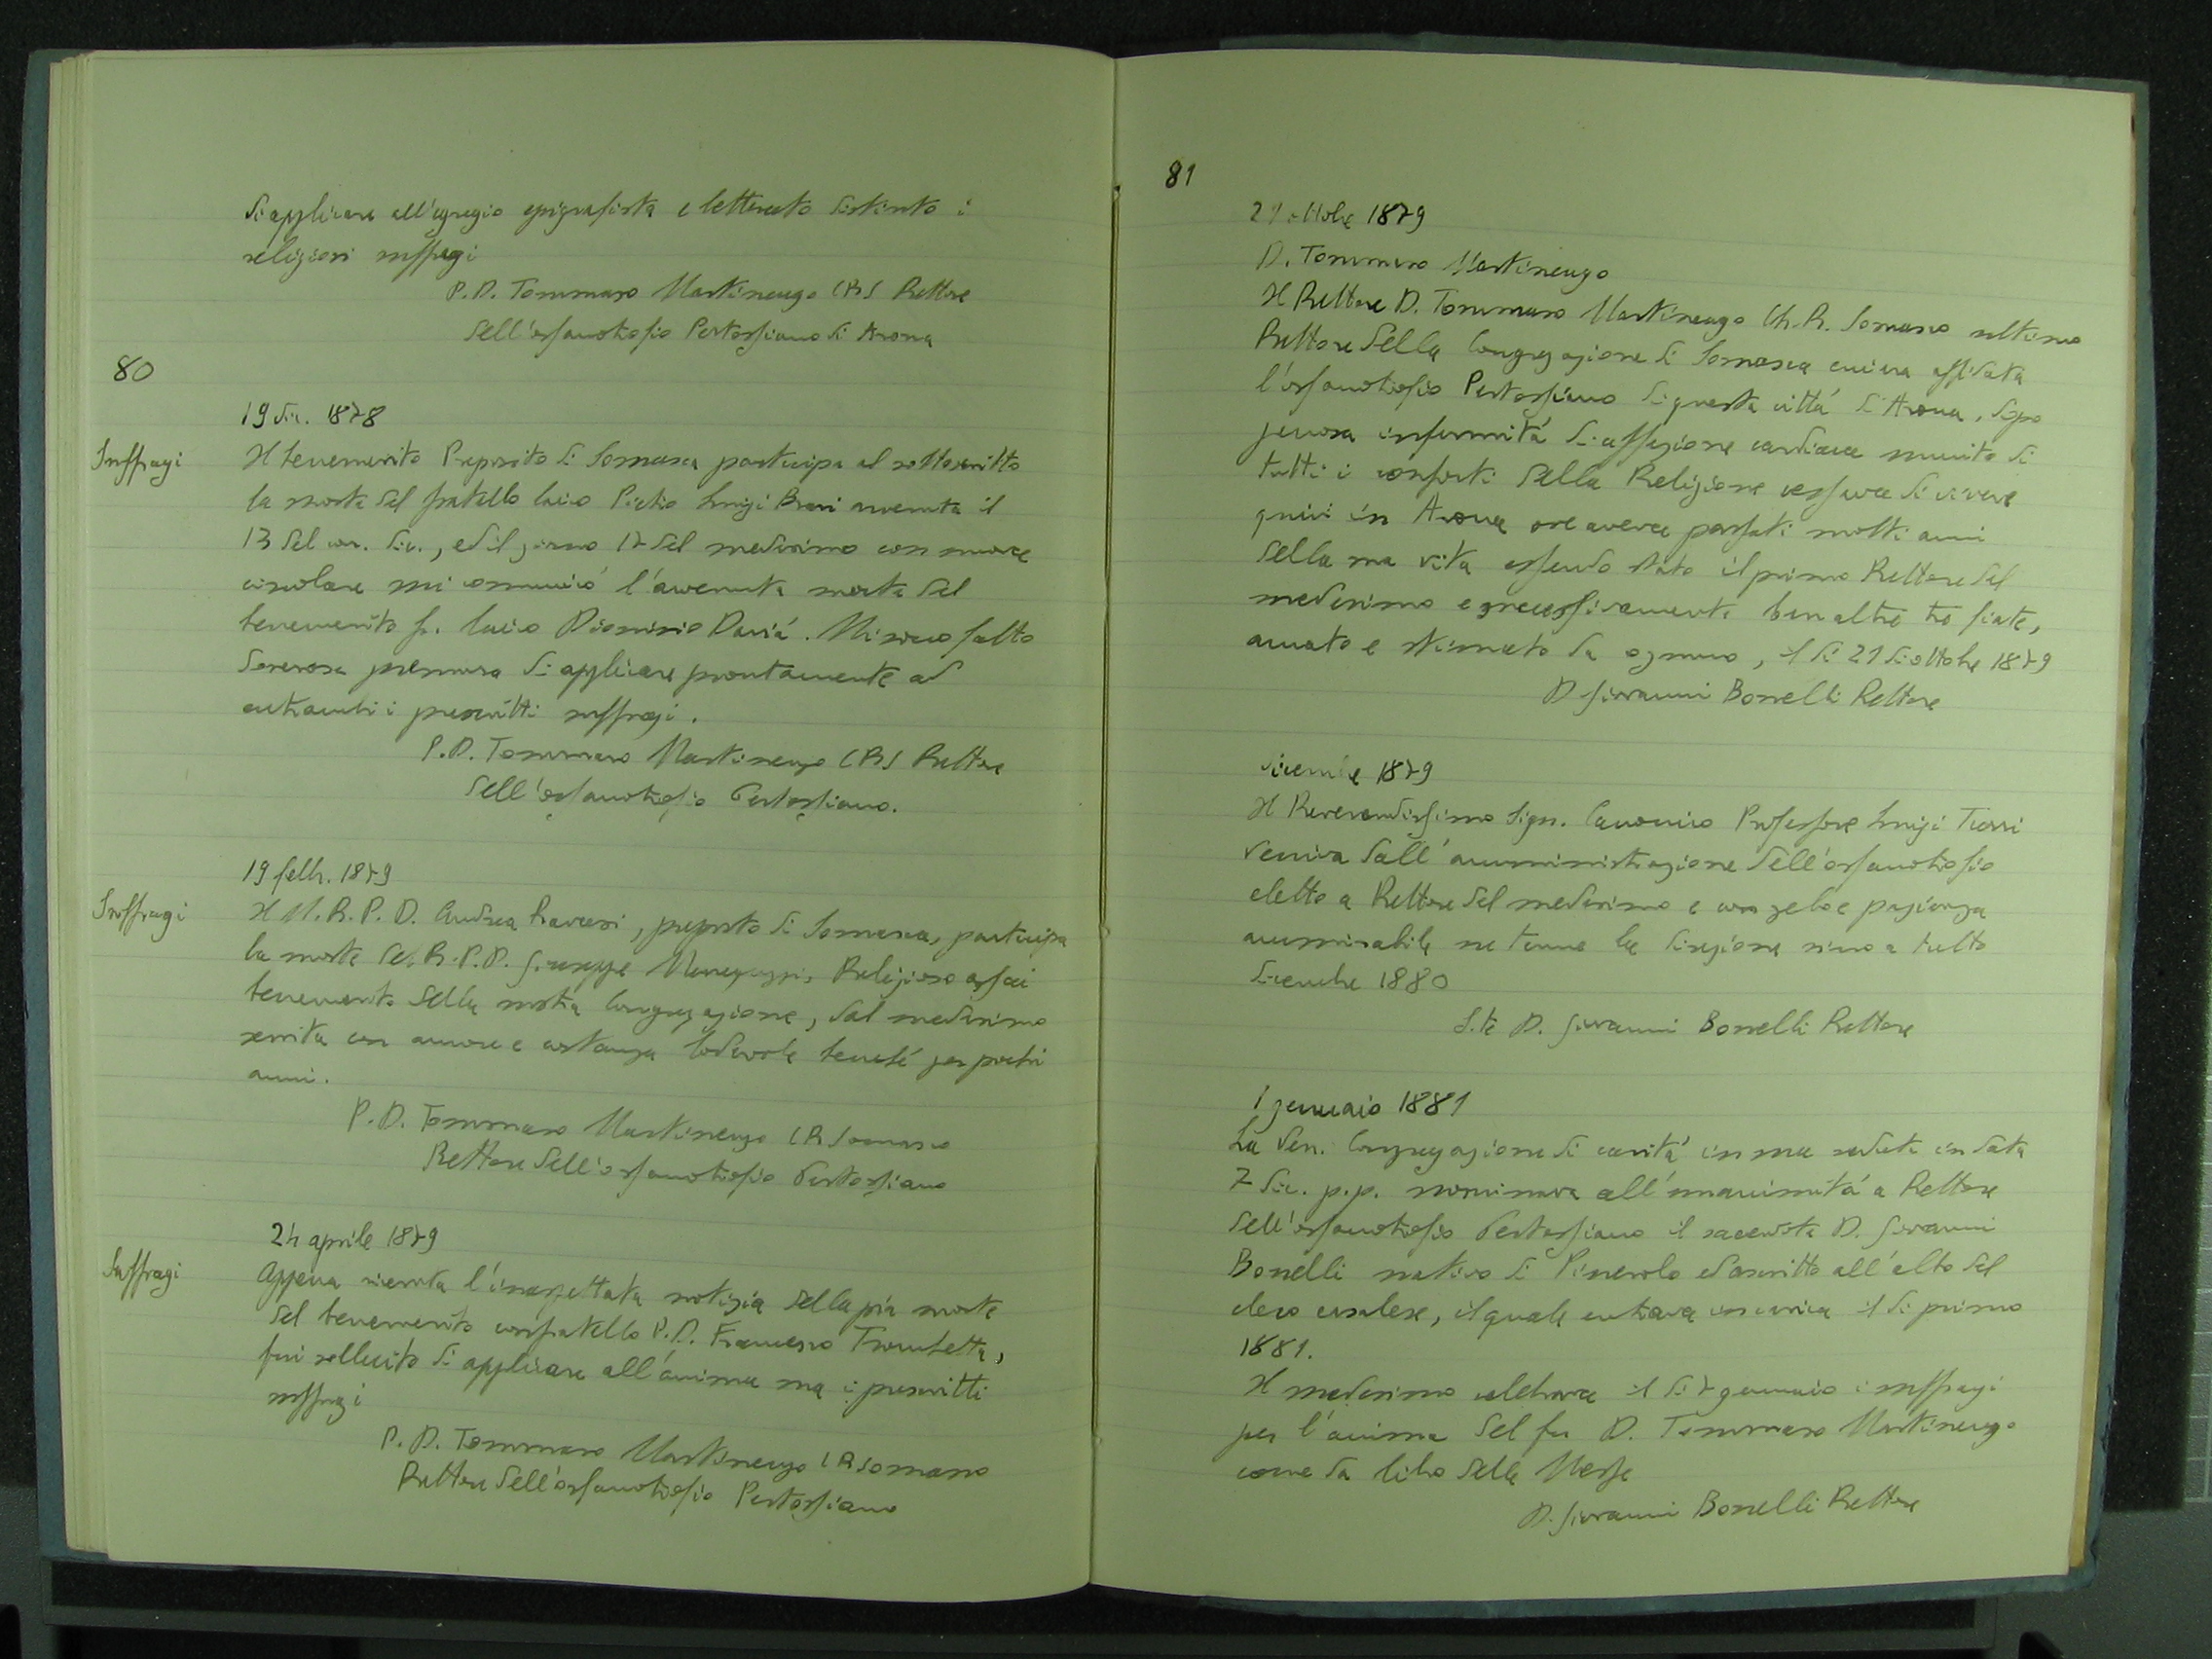 di applicare all'egregio epigrafista e letterato distinto i
religiosi suffragi
P.D. Tommaso Martinengo CRS Rettore
dell'orfanotrofio Pertossiano di Arona
80
19 dic. 1878
Suffragi
Il benemerito Preposito di Somasca partecipa al sottoscritto
la morte del fratello laico Pietro Luigi Bravi avvenuta il
13 del cor. dic., ed il giorno 17 del medesimo con nuova
circolare mi comunicò l'avvenuta morte del
benemerito fr. laico Dionisio Davià. Mi sono fatto
doverosa premura di applicare prontamente ad
entrambi i prescritti suffragi.
P.D. Tommaso Martinengo CRS Rettore
dell'orfanotrofio Pertossiano.
19 febb. 1879
Suffragi
Il M.R.P.D. Andrea Ravasi, preposto di Somasca, partecipa
la morte del R.P.D. Giuseppe Religioso assai
benemerito della nostra Congregazione, dal medesimo
servita con amore e costanza lodevole benché per pochi
anni.
P.D. Tommaso Martinengo CR Somasco
Rettore dell'orfanotrofio Pertossiano
24 aprile 1879
Suffragi
Appena ricevuta l'inaspettata notizia della pia morte
del benemerito confratello P.D. Francesco Trombetta,
fui sollecito di applicare all'anima sua i prescritti
suffragi
P.D. Tommaso Martinengo CR Somasco
Rettore dell'orfanotrofio Pertossiano
81
21 ottobre 1879
D. Tommaso Martinengo
Il Rettore D. Tommaso Martinengo Ch.R. Somasco ultimo
Rettore della Congregazione di Somasca cui era affidata
l'orfanotrofio Pertossiano di questa città di Arona, dopo
penosa infermità di affezione cardiaca munito di
tutti i conforti della Religione cessava di vivere
quivi in Arona ove aveva passati molti anni
della sua vita essendo stato il primo Rettore del
medesimo e successivamente ben altre tre fiate,
amato e stimato da ognuno, il dì 21 di ottobre 1879
D. Giovanni Bonelli Rettore
dicembre 1879
Il Reverendissimo Sign. Canonico Professore Luigi
veniva dall'amministrazione dell'orfanotrofio
eletto a Rettore del medesimo e con zelo e pazienza
ammirabile ne tenne la direzione sino a tutto
dicembre 1880
S.te D. Giovanni Bonelli Rettore
1 gennaio 1881
La Ven. Congregazione di carità in sua seduta in data
7 dic. p.p. nominava all'unanimità a Rettore
dell'orfanotrofio Pertossiano il sacerdote D. Giovanni
Bonelli nativo di Pinerolo ed ascritto all'albo del
clero casalese, il quale entrava in carica il dì primo
1881.
Il medesimo celebrava il dì 7 gennaio i suffragi
per l'anima del fu D. Tommaso Martinengo
come da libro delle Messe
D. Giovanni Bonelli Rettore